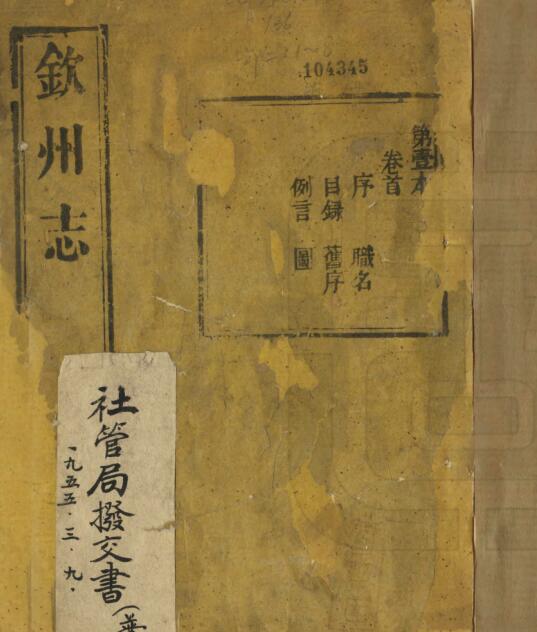 欽州志
104345
第壹本
卷首
序 職名
目録 舊序
例言 圖
社管局撥交書
一九五五·三·九·